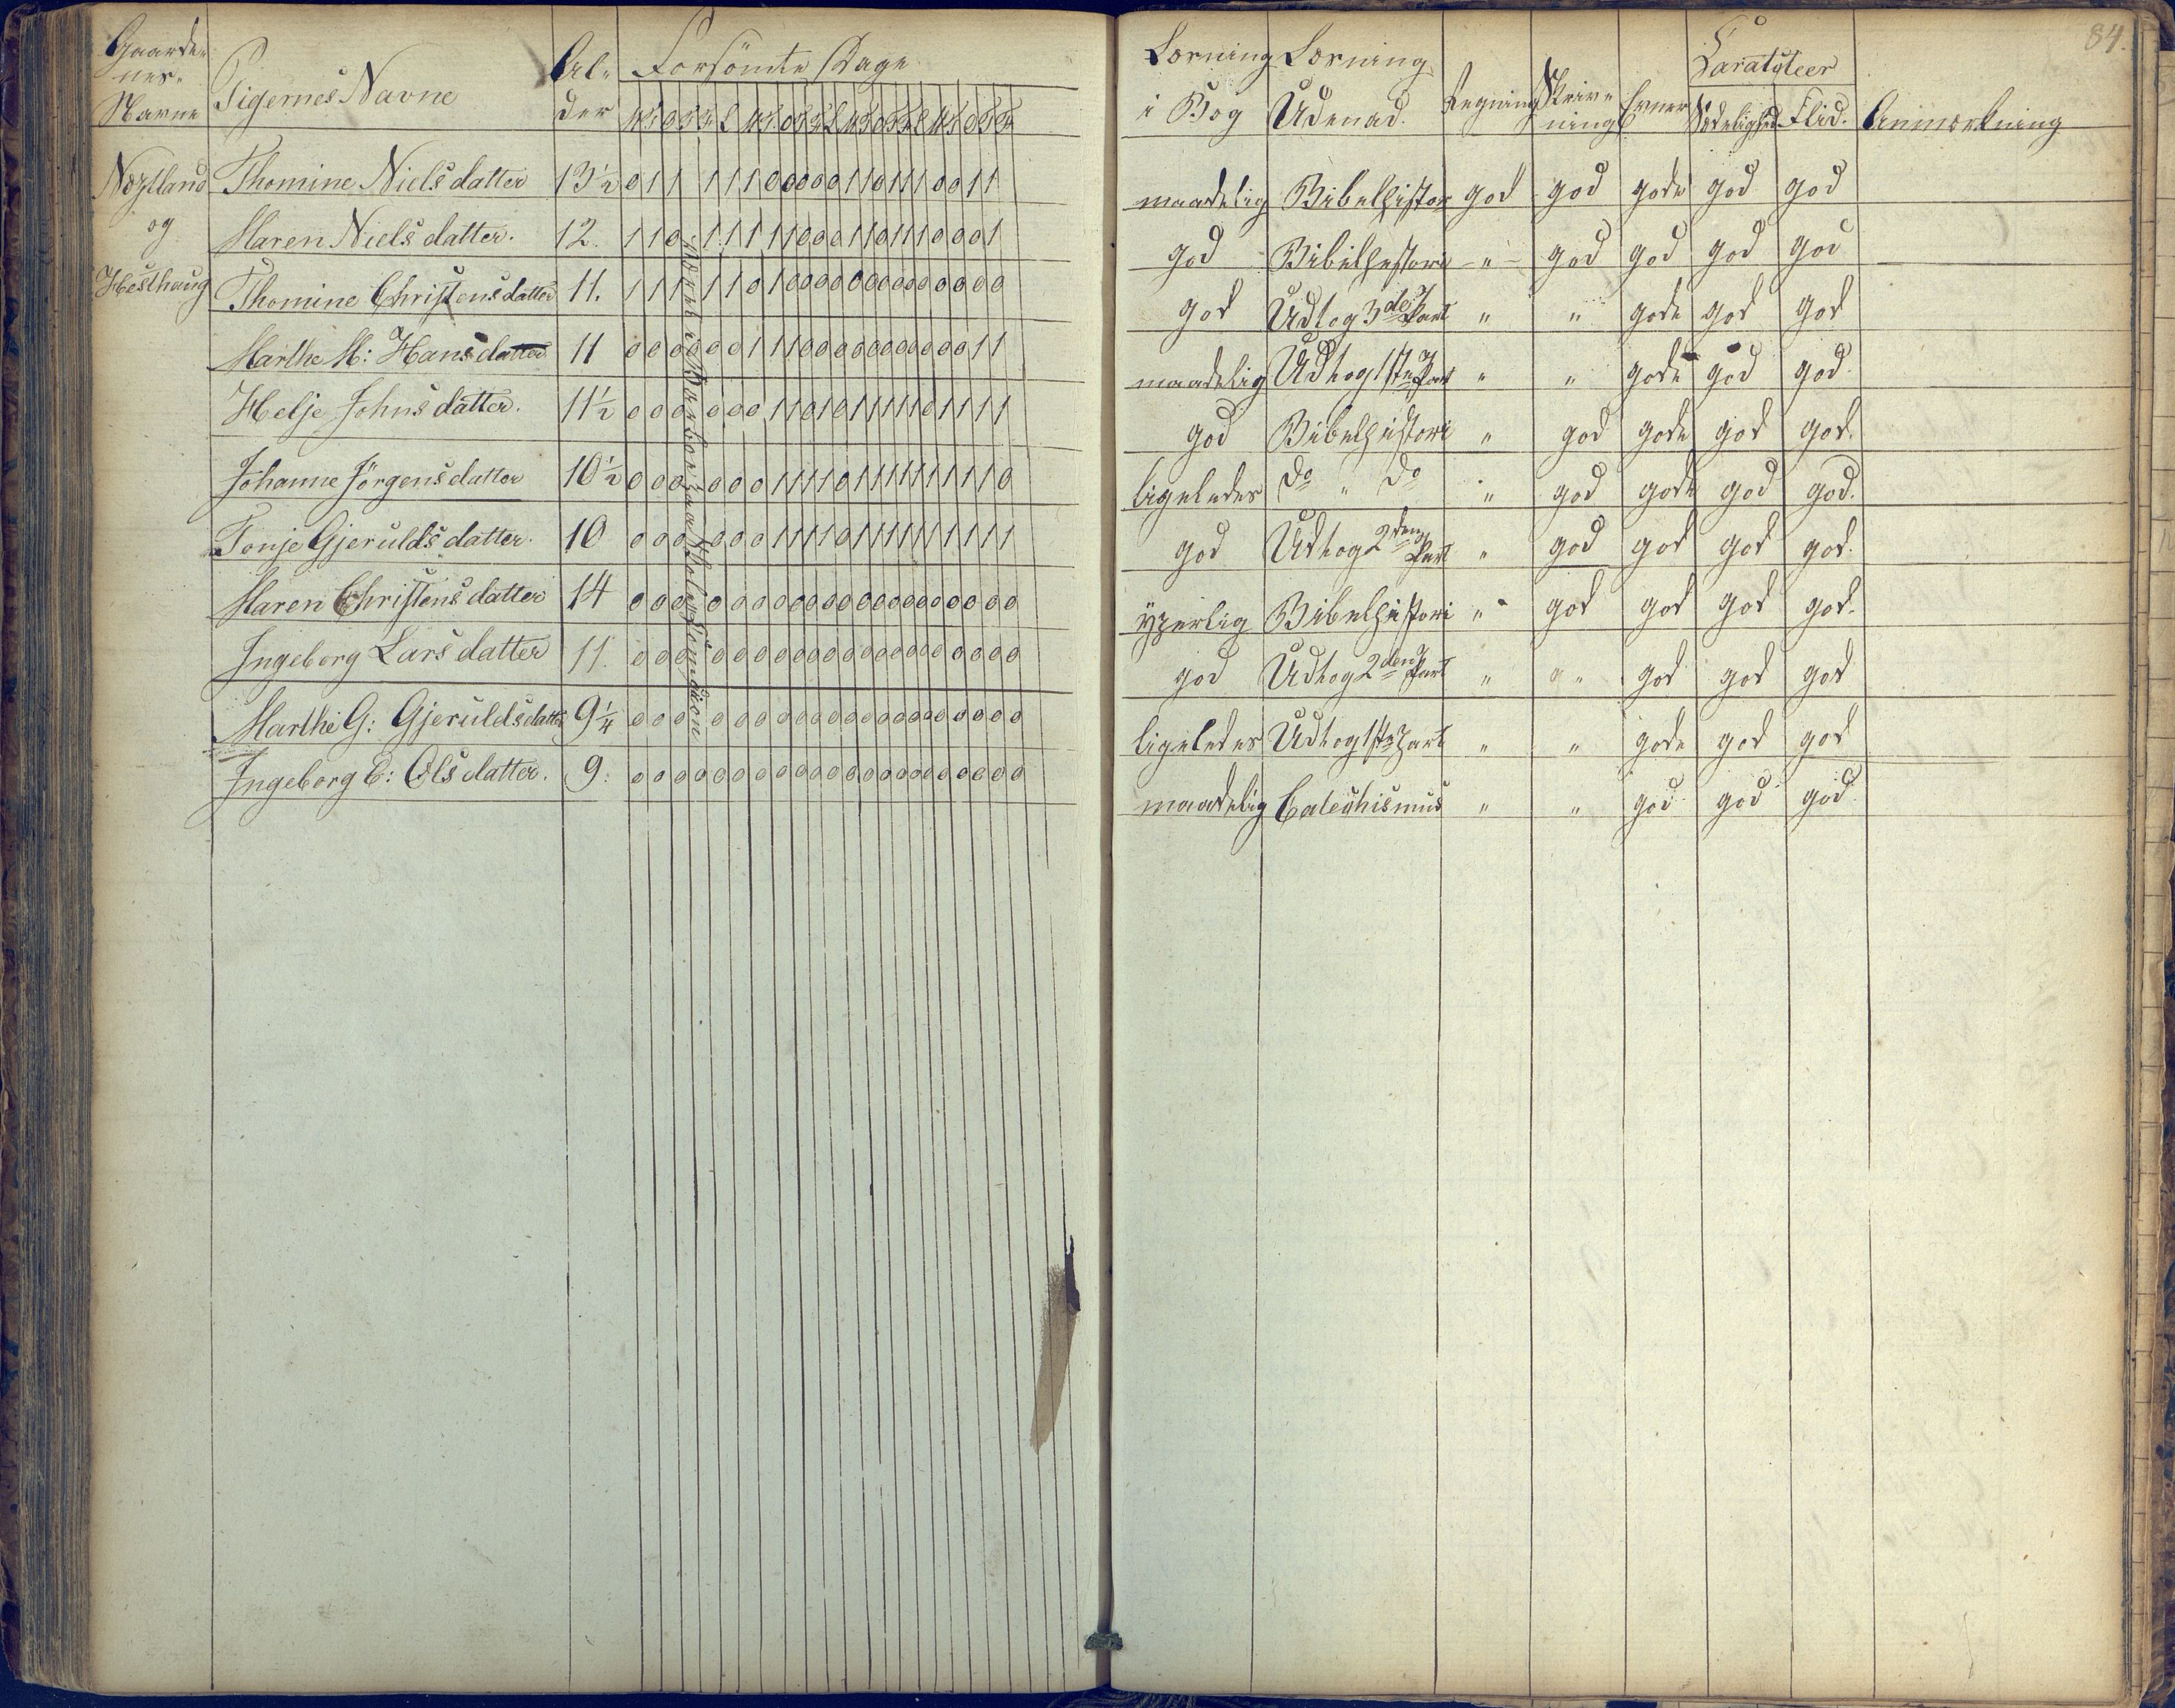 84.
Gaarde- Pigernes Navne Al- Forsömte Dage Lærning Lærning Regning Skriv- Evner Caracteer Anmærkning
nes- der i Bog Udenad. ning Sædelighed Flid.
Navne
Næstland Thomine Nielsdatter 13½ 0 1 1 1 1 1 0 0 0 0 0 1 1 0 1 1 1 0 0 1 1 maadelig Bibelhistor god god gode god god
og Maren Nielsdatter. 12. 1 1 0 1 1 1 1 1 0 0 0 1 1 0 1 1 1 0 0 0 1 god Bibelhistori - " - god god god god
Hesthaug Thomine Christensdatter 11. 1 1 1 1 1 0 1 0 0 0 0 0 0 0 0 0 0 0 0 0 0 god Udtog 3die Part " " gode god god
Marthe M: Hansdatter 11 0 0 0 0 0 1 1 1 0 0 0 0 0 0 0 0 0 0 0 1 1 maadelig Udtog 1ste Part " " gode god god.
Helje Johnsdatter. 11½ 0 0 0 0 0 0 1 1 0 1 0 1 1 1 1 1 0 1 1 1 1 god Bibelhistori " god gode god god.
Johanne Jörgensdatter 10½ 0 0 0 0 0 0 1 1 1 1 0 1 1 1 1 1 1 1 1 1 0 ligeledes do " do " god gode god god.
Tonje Gjeruldsdatter. 10 0 0 0 0 0 0 1 1 1 1 0 1 1 1 1 1 1 1 1 1 1 god Udtog 2den Part " god god god god.
Maren Christensdatter 14 0 0 0 0 0 0 0 0 0 0 0 0 0 0 0 0 0 0 0 0 0 yperlig Bibelhistori " god god god god.
Ingeborg Larsdatter 11. 0 0 0 0 0 0 0 0 0 0 0 0 0 0 0 0 0 0 0 0 0 god Udtog 2den Part " " god god god
Marthe G: Gjeruldsdatter 9¼ 0 0 0 0 0 0 0 0 0 0 0 0 0 0 0 0 0 0 0 0 0 ligeledes Udtog 1ste Part " " gode god god
Ingeborg E: Olsdatter. 9. 0 0 0 0 0 0 0 0 0 0 0 0 0 0 0 0 0 0 0 0 0 0 maadelig Catechismus " " god god god